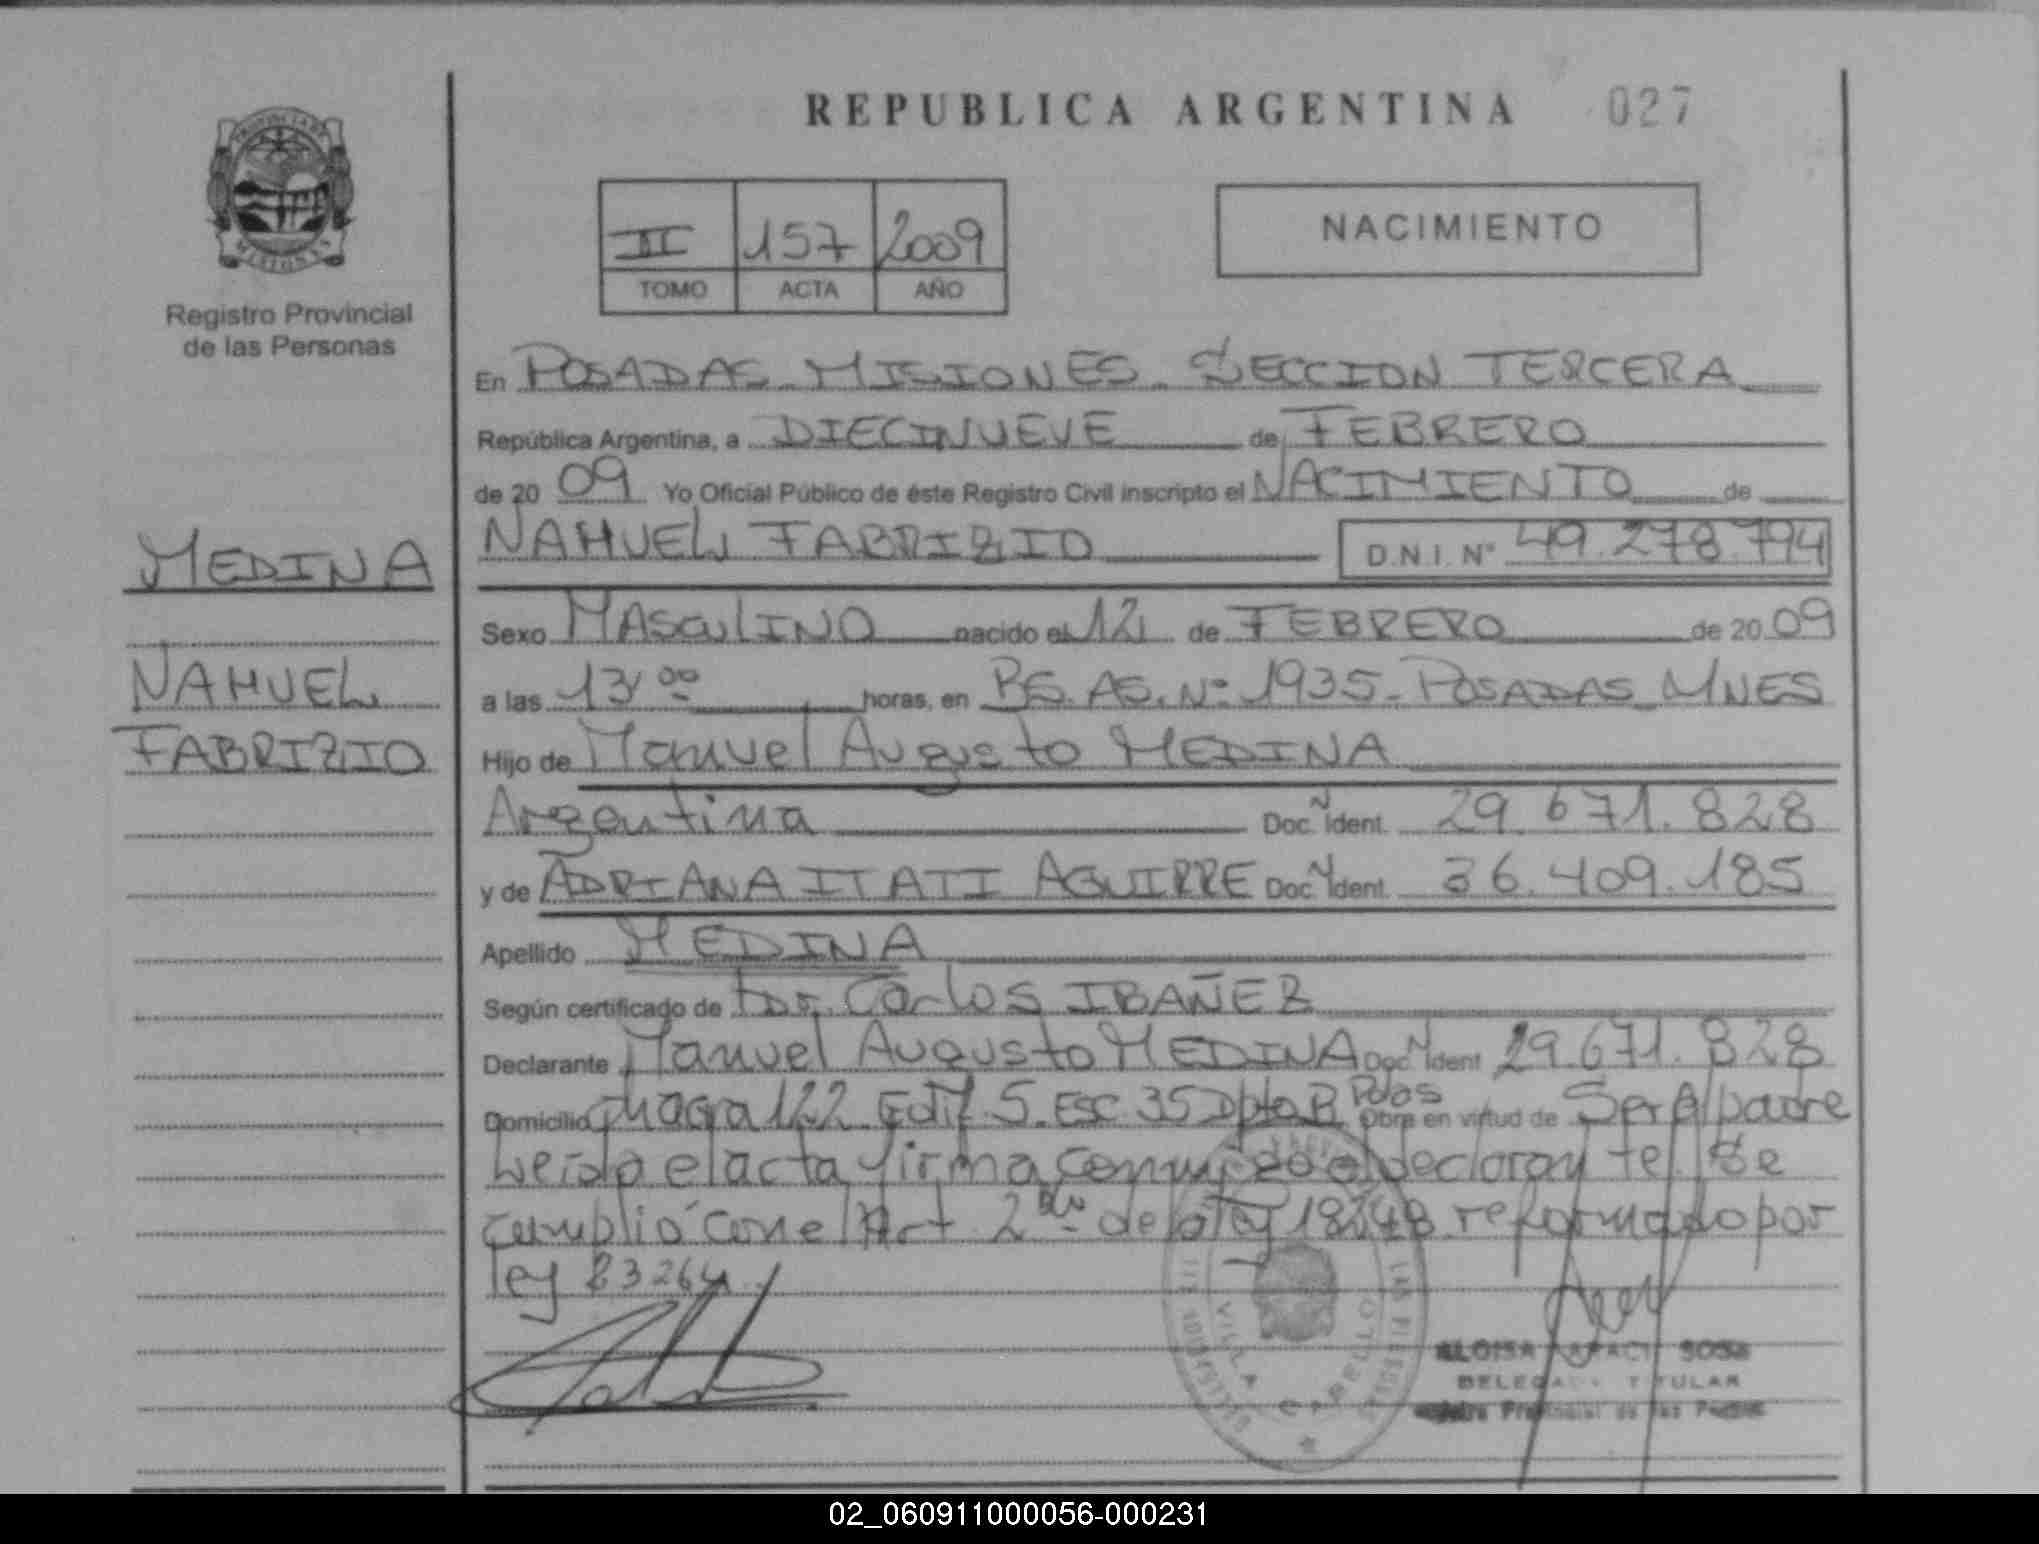 REPUBLICA ARGENTINA 027
PROVINCIA DE
MISIONES
Registro Provincial
de las Personas
II 157 2009
TOMO ACTA AÑO
NACIMIENTO
En POSADAS MISIONES SECCION TERCERA
República Argentina, a DIECINUEVE de FEBRERO
de 20 09 Yo Oficial Público de éste Registro Civil inscripto el NACIMIENTO de
NAHUEL FABRIZIO D.N.I. Nº 49.278.794
MEDINA
NAHUEL
FABRIZIO
Sexo MASCULINO nacido el 12 de FEBRERO de 20 09
a las 13 00 horas, en BS. AS. Nº 1935 - POSADAS MNES
Hijo de Manuel Augusto MEDINA
Argentina Doc. N Ident. 29.671.828
y de ADRIANA ITATI AGUIRRE Doc. N Ident. 36.409.185
Apellido MEDINA
Según certificado de Dr. Carlos IBAÑEZ
Declarante Manuel Augusto MEDINA Doc. N Ident 29.671.828
Domicilio Chacra 122 Edif 5. Esc 35 Dpto B Pdas Obra en virtud de Ser el padre
Leida el acta firma conmigo el declarante. Se
cumplió con el Art. 2do de la ley 18248 reformado por
ley 23264
VILLA CABELLO
SOSA
DELEGADA TITULAR
Provincial de las
02_060911000056-000231